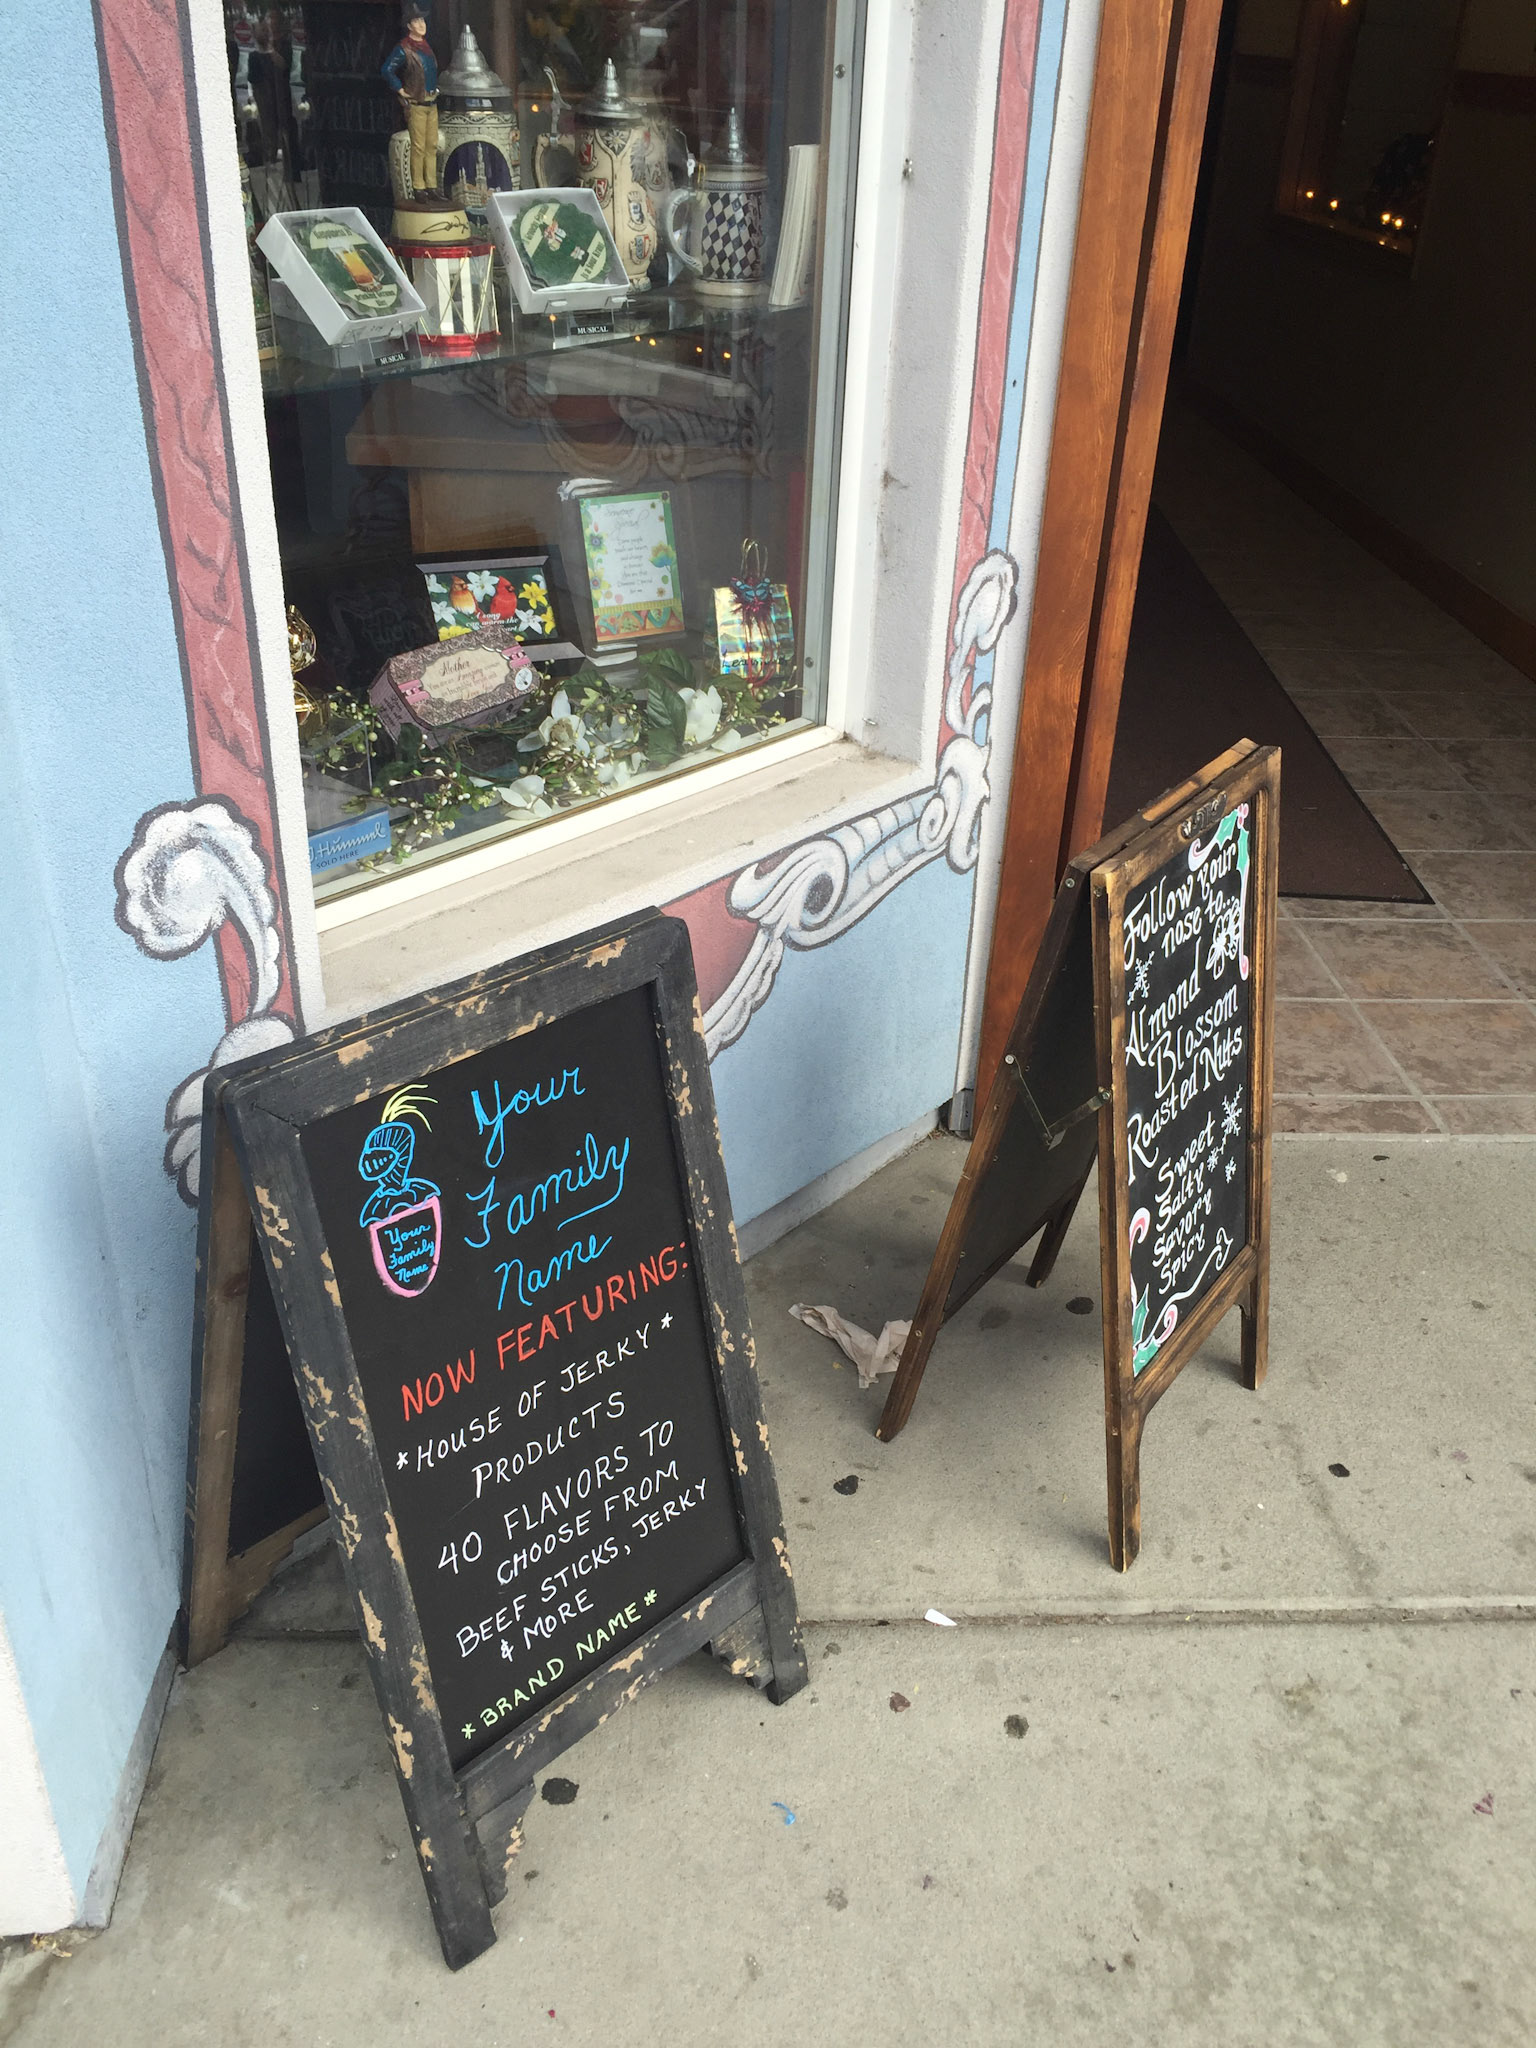 MUSICAL
MUSICAL
Someone
Special
Mother
Hummel
SOLD HERE
Your
Family
Name
Your
Family
Name
NOW FEATURING:
*HOUSE OF JERKY*
PRODUCTS
40 FLAVORS TO
CHOOSE FROM
BEEF STICKS, JERKY
& MORE
*BRAND NAME*
Follow your
nose to...
Almond
Blossom
Roasted Nuts
Sweet
Salty
Savory
Spicy